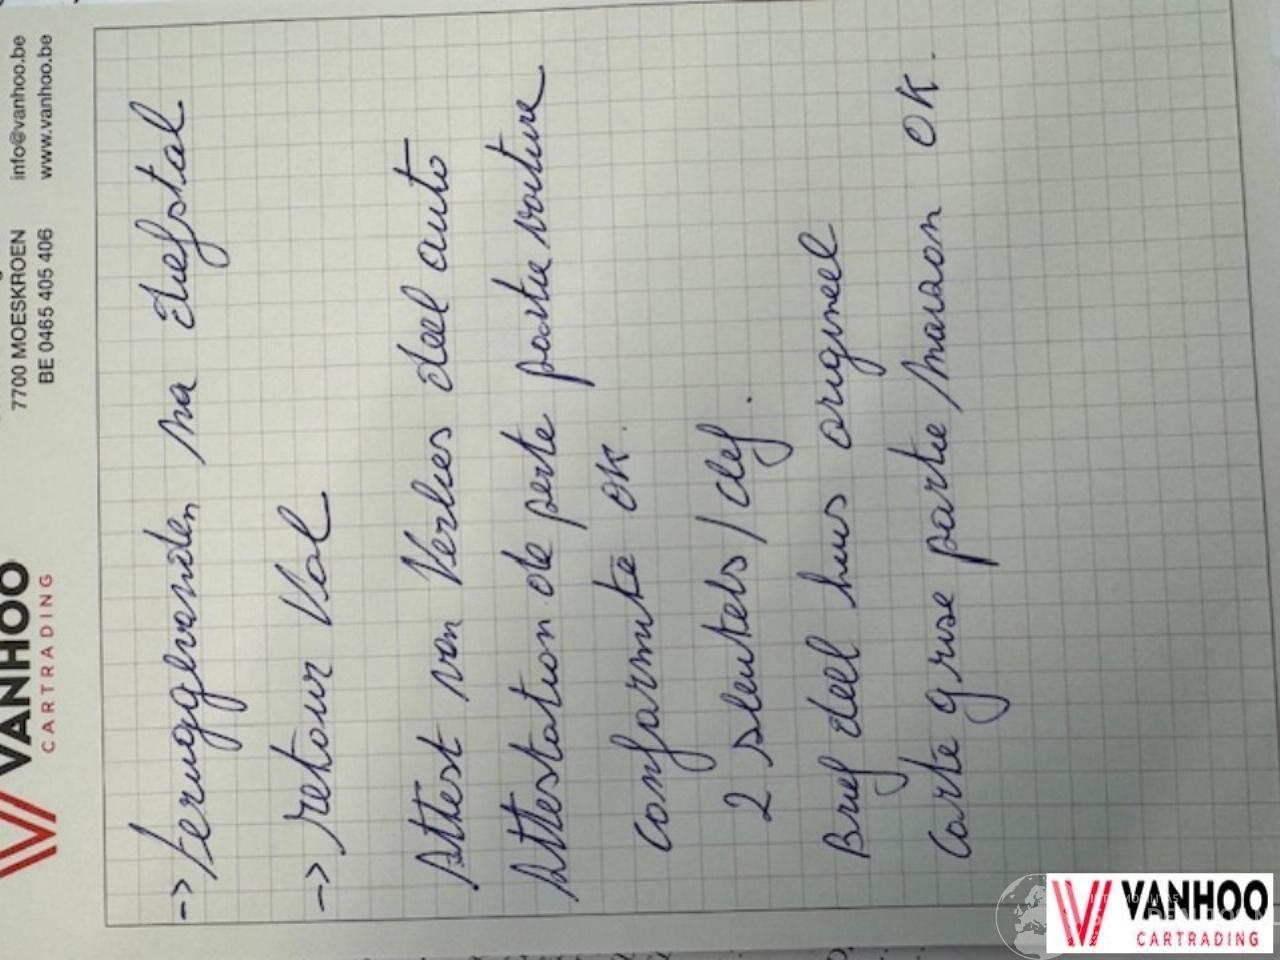 VANHOO
CARTRADING
7700 MOESKROEN
BE 0465 405 406
info@vanhoo.be
www.vanhoo.be
-> teruggevonden na diefstal
-> retour Vol
Attest van Verlies deel auto
Attestation de perte partie voiture
conformité OK.
2 sleutels / clef.
Brief deel huis origineel
Carte grise partie maison OK.
VANHOO
CARTRADING